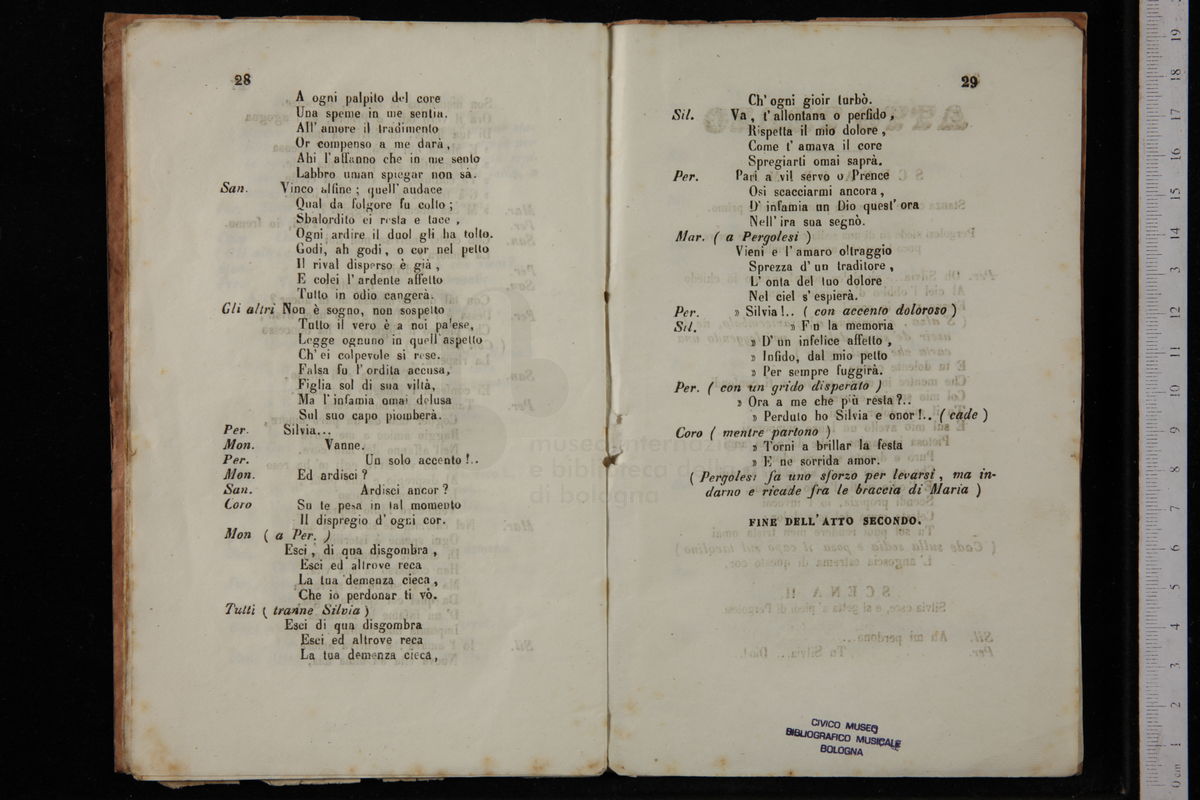 28
A ogni palpito del core
Una speme in me sentia.
All' amore il tradimento
Or compenso a me darà,
Ahi l'affanno che in me sento
Labbro uman spiegar non sà.
San. Vinco alfine; quell' audace
Qual da folgore fu colto;
Sbalordito ei resta e tace,
Ogni ardire il duol gli ha tolto.
Godi, ah godi, o cor nel petto
Il rival disperso è già,
E colei l'ardente affetto
Tutto in odio cangerà.
Gli altri Non è sogno, non sospetto
Tutto il vero è a noi palese,
Legge ognuno in quell'aspetto
Ch'ei colpevole si rese.
Falsa fu l'ordita accusa,
Figlia sol di sua viltà,
Ma l'infamia omai delusa
Sul suo capo piomberà.
Per. Silvia...
Mon. Vanne.
Per. Un solo accento!..
Mon. Ed ardisci?
San. Ardisci ancor?
Coro Su te pesa in tal momento
Il dispregio d'ogni cor.
Mon ( a Per. )
Esci, di qua disgombra,
Esci ed altrove reca
La tua demenza cieca,
Che io perdonar ti vò.
Tutti ( tranne Silvia )
Esci di qua disgombra
Esci ed altrove reca
La tua demenza cieca,
29
Ch'ogni gioir turbò.
Sil. Va, t'allontana o perfido,
Rispetta il mio dolore,
Come t' amava il core
Spregiarti omai saprà.
Per. Pari a vil servo o Prence
Osi scacciarmi ancora,
D' infamia un Dio quest' ora
Nell' ira sua segnò.
Mar. ( a Pergolesi )
Vieni e l'amaro oltraggio
Sprezza d'un traditore,
L' onta del tuo dolore
Nel ciel s'espierà.
Per. » Silvia!.. ( con accento doloroso )
Sil. » Fu la memoria
» D'un infelice affetto,
» Infido, dal mio petto
» Per sempre fuggirà.
Per. ( con un grido disperato )
» Ora a me che più resta?..
» Perduto ho Silvia e onor!.. ( cade )
Coro ( mentre partono )
» Torni a brillar la festa
» E ne sorrida amor.
( Pergolesi fa uno sforzo per levarsi, ma in-
darno e ricade fra le braccia di Maria )
FINE DELL'ATTO SECONDO.
museo internazionale
e biblioteca della musica
di bologna
CIVICO MUSEO
BIBLIOGRAFICO MUSICALE
BOLOGNA
0 cm 1 2 3 4 5 6 7 8 9 10 11 12 13 14 15 16 17 18 19